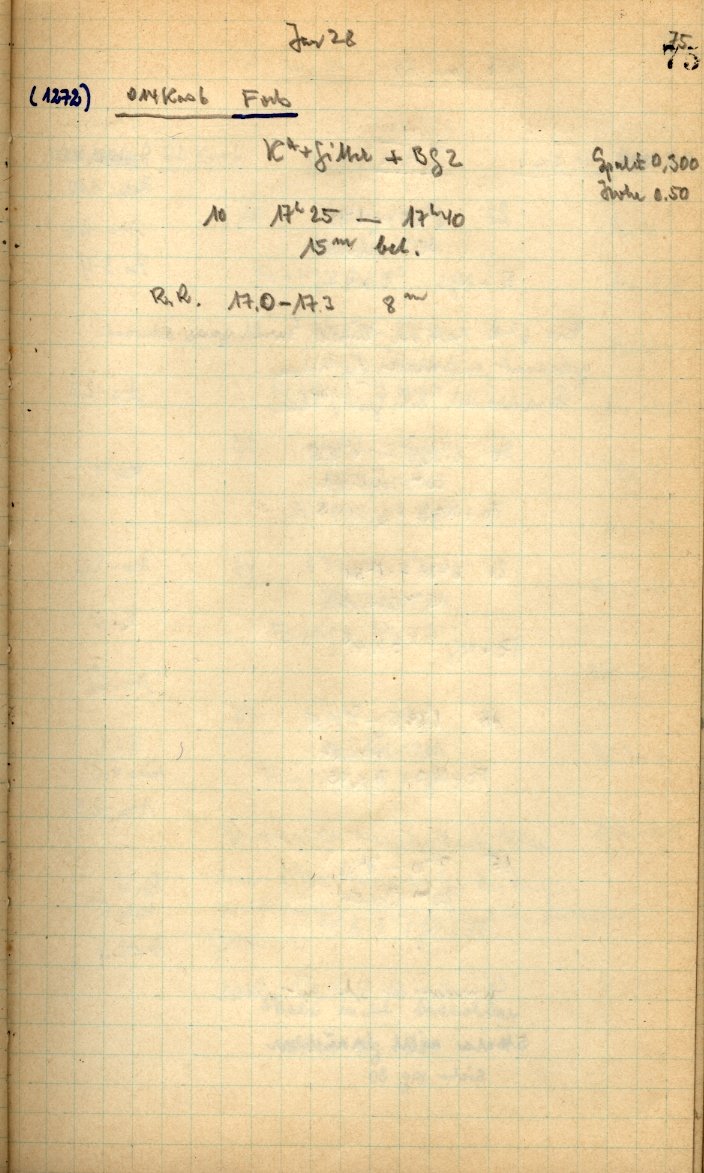 Jan 28
75
75
(1272)
K* + Gitter + BG 2
Spalt 0,300
Höhe 0.50
10 17ʰ25 — 17ʰ40
15ᵐ bel.
17.0-17.3 8ᵐ